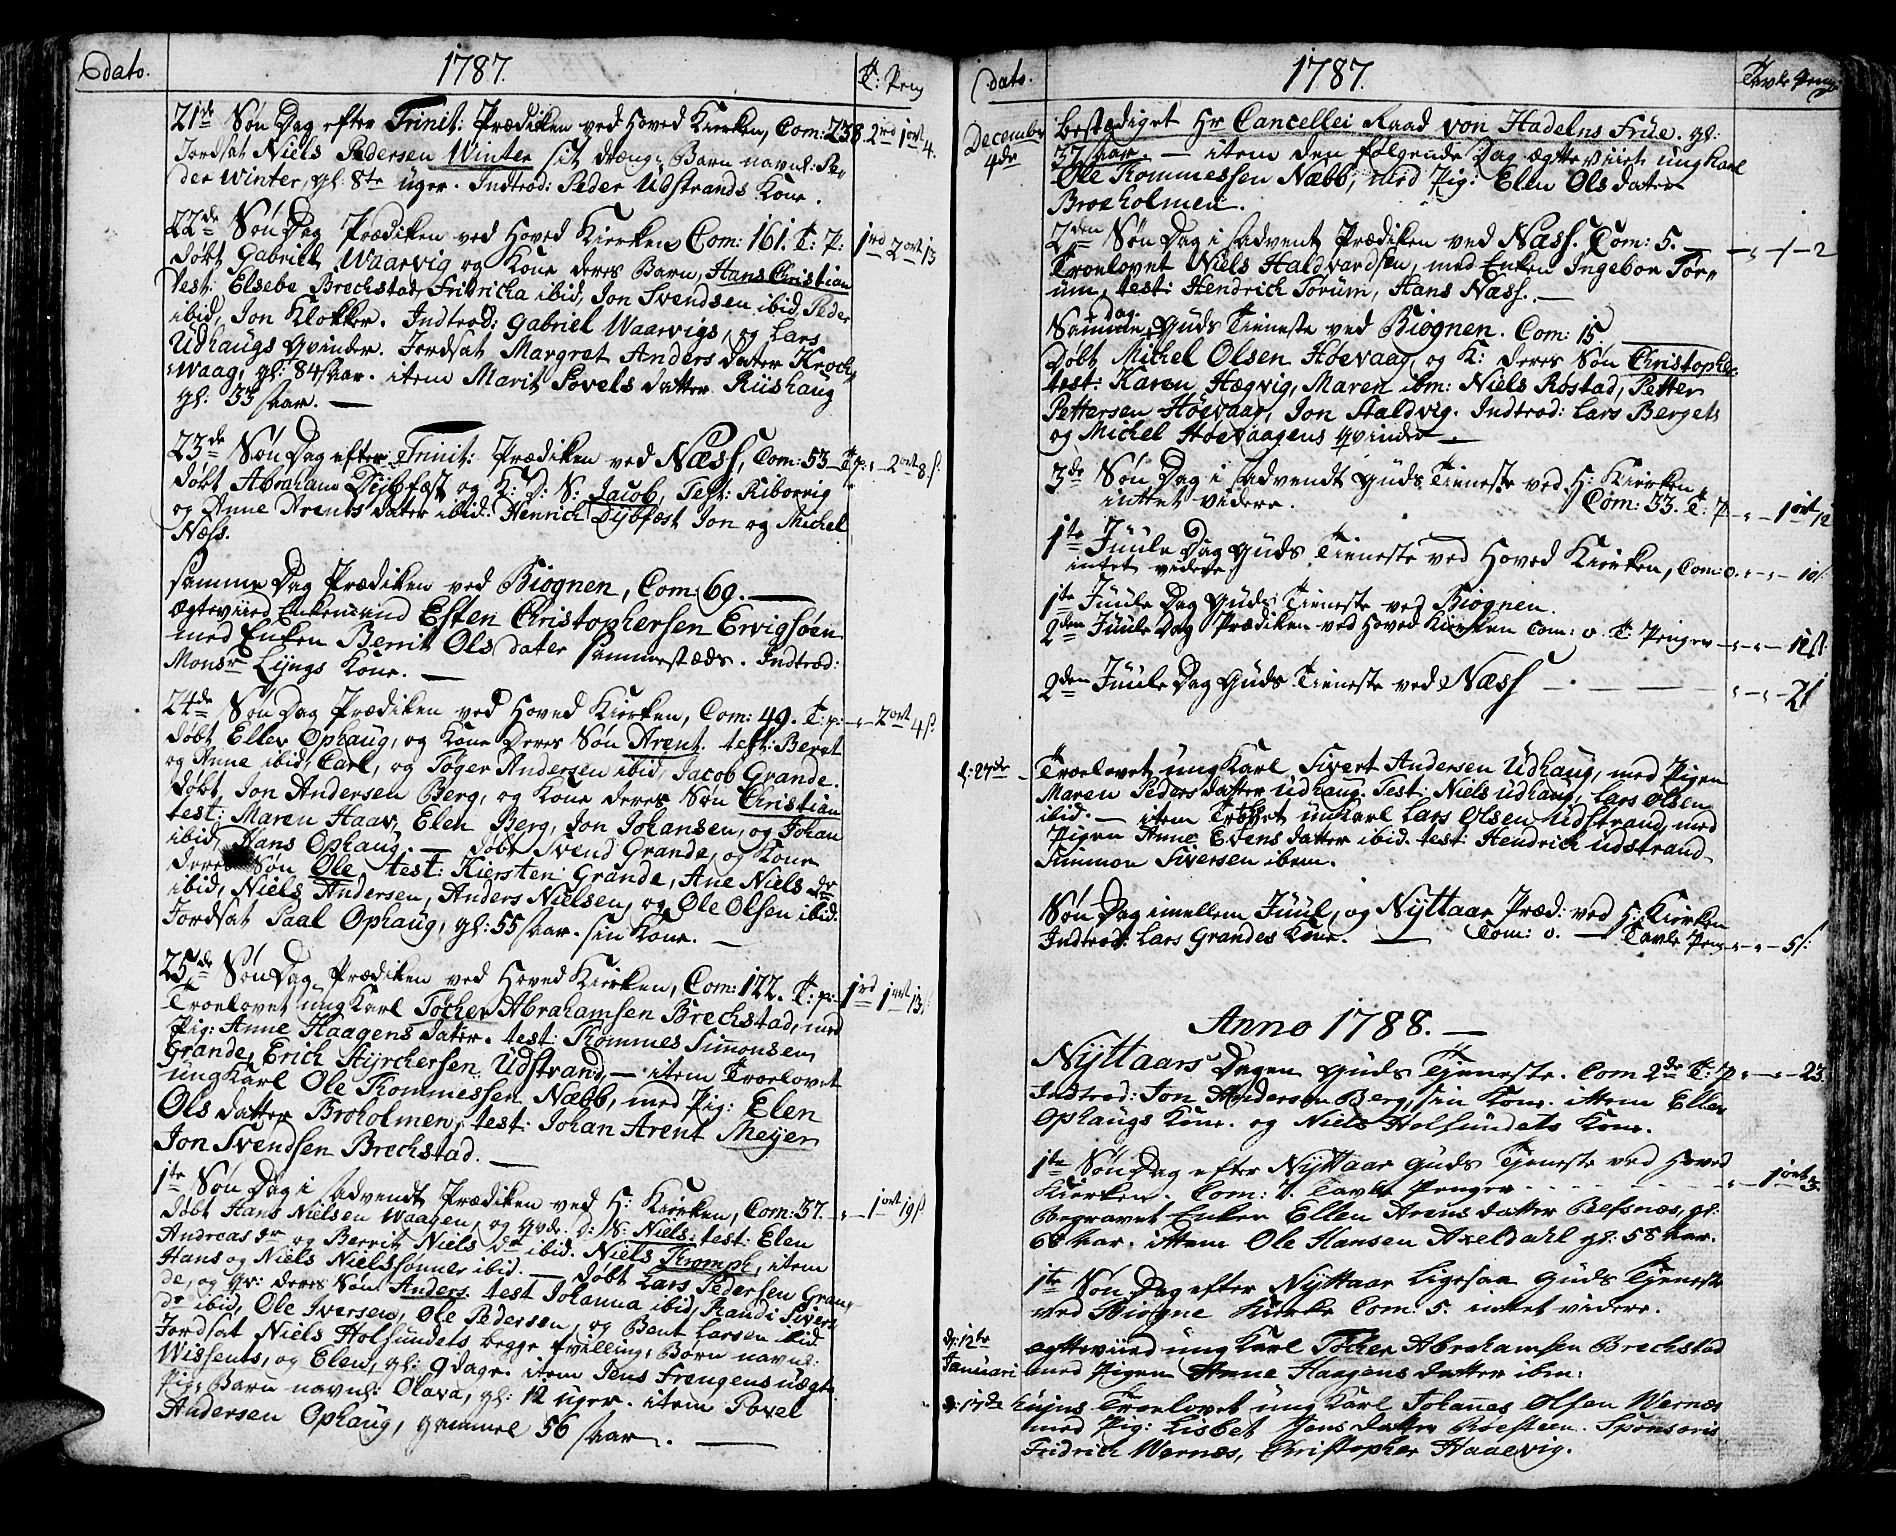 dato.
1787.
T: Peng
21de Søn Dag efter Trinit: Prædiken ved Hoved Kierken, Com: 238. 2rd 1ort 4.
Jordsat Niels Pedersen Winter sit drænge Barn navnl: Pe-
der Winter, gl: 8te uger. Indtrod: Peder Udstrands Kone.
22de Søn Dag Prædiken ved Hoved Kierken Com: 161. T: P: 1rd 2ort 13
døbt Gabriel Waarvig og Kone deres Barn, Hans Christian
test: Elsebe Brechstad, Fridricha ibid, Jon Svendsen ibid, Peder
ibid, Jon Klokker. Indtrod: Gabriel Waarvigs, og Lars
Udhaugs Qvinder. Jordsat Margret Anders dater Kroch-
waag, gl: 84 Aar. item Marit Povels datter Riishaug
gl: 33 Aar.
23de Søn Dag efter Trinit: Prædiken ved Næss, Com: 53 T p: - 2ort 8 s.
døbt Abraham Dybfæst og K: D: S: Jacob, Test: Kiborrig
og Anne Arents dater ibid. Henrich Dybfæst Jon og Michel
Næss.
samme Dag Prædiken ved Biognen, Com: 69.
Ægteviied Enkemand Esten Christophersen Ervigsøen
med Enken Berrit Ols dater sammestæds. Indtrod:
Monsr Lyngs Kone.
24de Søn Dag Prædiken ved Hoved Kierken, Com: 49. T: p: - 2ort 4 s.
døbt Ellev Ophaug, og Kone deres Søn Arent. test: Beret
og Anne ibid, Carl, og Tøger Andersen ibid, Jacob Grande.
døbt, Jon Andersen Berg, og Kone deres Søn Christian
test: Maren Haav, Elen Berg, Jon Johansen, og Johan
ibid, Hans Ophaug. — døbt Svend Grande, og Kone
deres Søn Ole test: Kiersten Grande, Ane Niels dr
ibid, Niels Andersen, Anders Nielsen, og Ole Olsen ibid.
Jordsat Paal Ophaug, gl: 55 Aar. sin Kone.
25de Søn Dag Prædiken ved Hoved Kierken, Com: 122. T: p: 1rd 1ort 13 s.
Troelovet ung Karl Tocher Abrahamsen Brechstad, med
Pig: Anne Haagens dater. test: Thommes Simonsen
Grande, Erich Styrchersen Udstrand, — item Troelovet
ung Karl Ole Thommessen Næbb, med Pig: Elen
Ols datter Broholmen, test: Johan Arent Meyer
Jon Svendsen Brechstad.
1te Søn Dag i Advendt Prædiken ved H: Kierken, Com: 37. - 1ort 19 s
døbt Hans Nielsen Waagen, og Qvde. d: S: Niels, test: Elen
Andreas dr og Berrit Niels dr ibid. Niels Tromph, item
Hans og Niels Nielssønner ibid. — døbt Lars Pedersen Gran-
de, og Qv: deres Søn Anders. test Johanna ibid, Randi Sivers
dr ibid, Ole Iversen, Ole Pedersen, og Bent Larsen ibid
Jordsat Niels Holsundets begge tvilling: Børn navnl:
Wissents, og Elen, gl: 9 dage. item Jens Frengens uægte
Pig: Barn navnl: Olava, gl: 12 uger. item Povel
Andersen Ophaug, gammel 56 Aar.
dato.
1787.
Tavle Penge
December
4de
bestædiget Hr Cancellei Raad von Hadelns Frue. gl:
37 Aar. — item den følgende Dag ægteviiet ung Karl
Ole Thommessen Næbb, med Pig: Elen Ols dater
Broeholmen.
2den Søn Dag i Advent Prædiken ved Næss. Com: 5. - 1 - 2
Troelovet Niels Haldvardsen, med Enken Ingebor Tør-
um, test: Hendrich Torum, Hans Næss.
Samme Dag Guds Tieneste ved Biognen. Com: 15.
Døbt Michel Olsen Høevaag, og K: deres Søn Christopher
test: Karen Hægvig, Maren ibm: Niels Røstad, Petter
Pettersen Høgvaar, Jon Staldvig. Indtrod: Lars Bergets
og Michel Høevaagens Qvinder
3de Søn Dag i Advendt Guds Tieneste ved H: Kierken,
intet videre. Com: 33. T: P. - 1ort 12
1te Juule Dag Guds Tieneste ved Hoved Kierken, Com: 0. - - 10 s.
intet videre
1te Juule Dag Guds Tieneste ved Biognen.
2den Juule Dag Prædiken ved Hoved Kierken Com: 0. T: Penger - - 12 s.
2den Juule Dag Guds Tieneste ved Næss - - 21
d: 27de
Troelovet ung Karl Sivert Andersen Udhaug, med Pigen
Maren Peders datter Udhaug. Test: Niels Udhaug, Lars Olsen
ibid. — item Trolovet un Karl Lars Olsen Udstrand, med
Pigen Anne Evens datter ibid. test: Hendrich Udstrand
Simmon Siversen ibem.
Søn Dag imellem Juul, og Nyttaar Præd: ved H: Kierken
Indtrod: Lars Grandes Kone. — Com: 0. — Tavle Peng - - 5 s.
Anno 1788.
Nyttaars Dagen Guds Tjeneste. Com 2de T: p - - 23.
Indtrod: Jon Andersen Berg, sin Kone. ittem Ellev
Ophaugs Kone. og Niels Holsundets Kone.
1te Søn Dag efter Nyttaar Guds Tjeneste ved Hoved
Kierken. Com: 7. Tavle Penger - 1ort 3
Begravet Enken Ellen Arens datter Befsnæs, gl.
68 Aar. ittem Ole Hansen Axeldahl gl: 58 Aar.
1te Søn Dag efter Nyttaar Ligesaa Guds Tjeneste
ved Biogne Kierke Com: 5. intet videre.
d: 12te
Januari
egtteviied ung Karl Tocher Abrahamsen Brechstad
med Pigen Anne Haagens datter ibm:
d: 17de
Troelovet ung Karl Johannes Olsen Wernæs
med Pig: Lisbet Jens datter Roesteen. Sponsoris
Fridrich Wernæs, Christopher Haaevig.